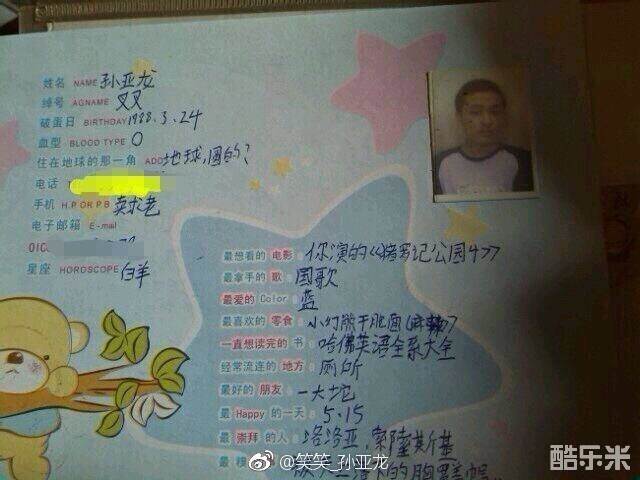 姓名 NAME 孙亚龙
绰号 AGNAME 叉叉
破蛋日 BIRTHDAY 1988.3.24
血型 BLOOD TYPE O
住在地球的那一角 ADD 地球,圆的?
电话
手机 H.P OR P.B 卖球老
电子邮箱 E-mail
OIC
星座 HOROSCOPE 白羊
最想看的电影 你演的《猪罗记公园4》
最拿手的歌 国歌
最爱的Color 蓝
最喜欢的零食 小幻熊干脆面(麻辣)
一直想读完的书 哈佛英语全系大全
经常流连的地方 厕所
最好的朋友 一大坨
最Happy的一天 5.15
最崇拜的人 洛洛亚,索隆斯基
@笑笑_孙亚龙
酷乐米